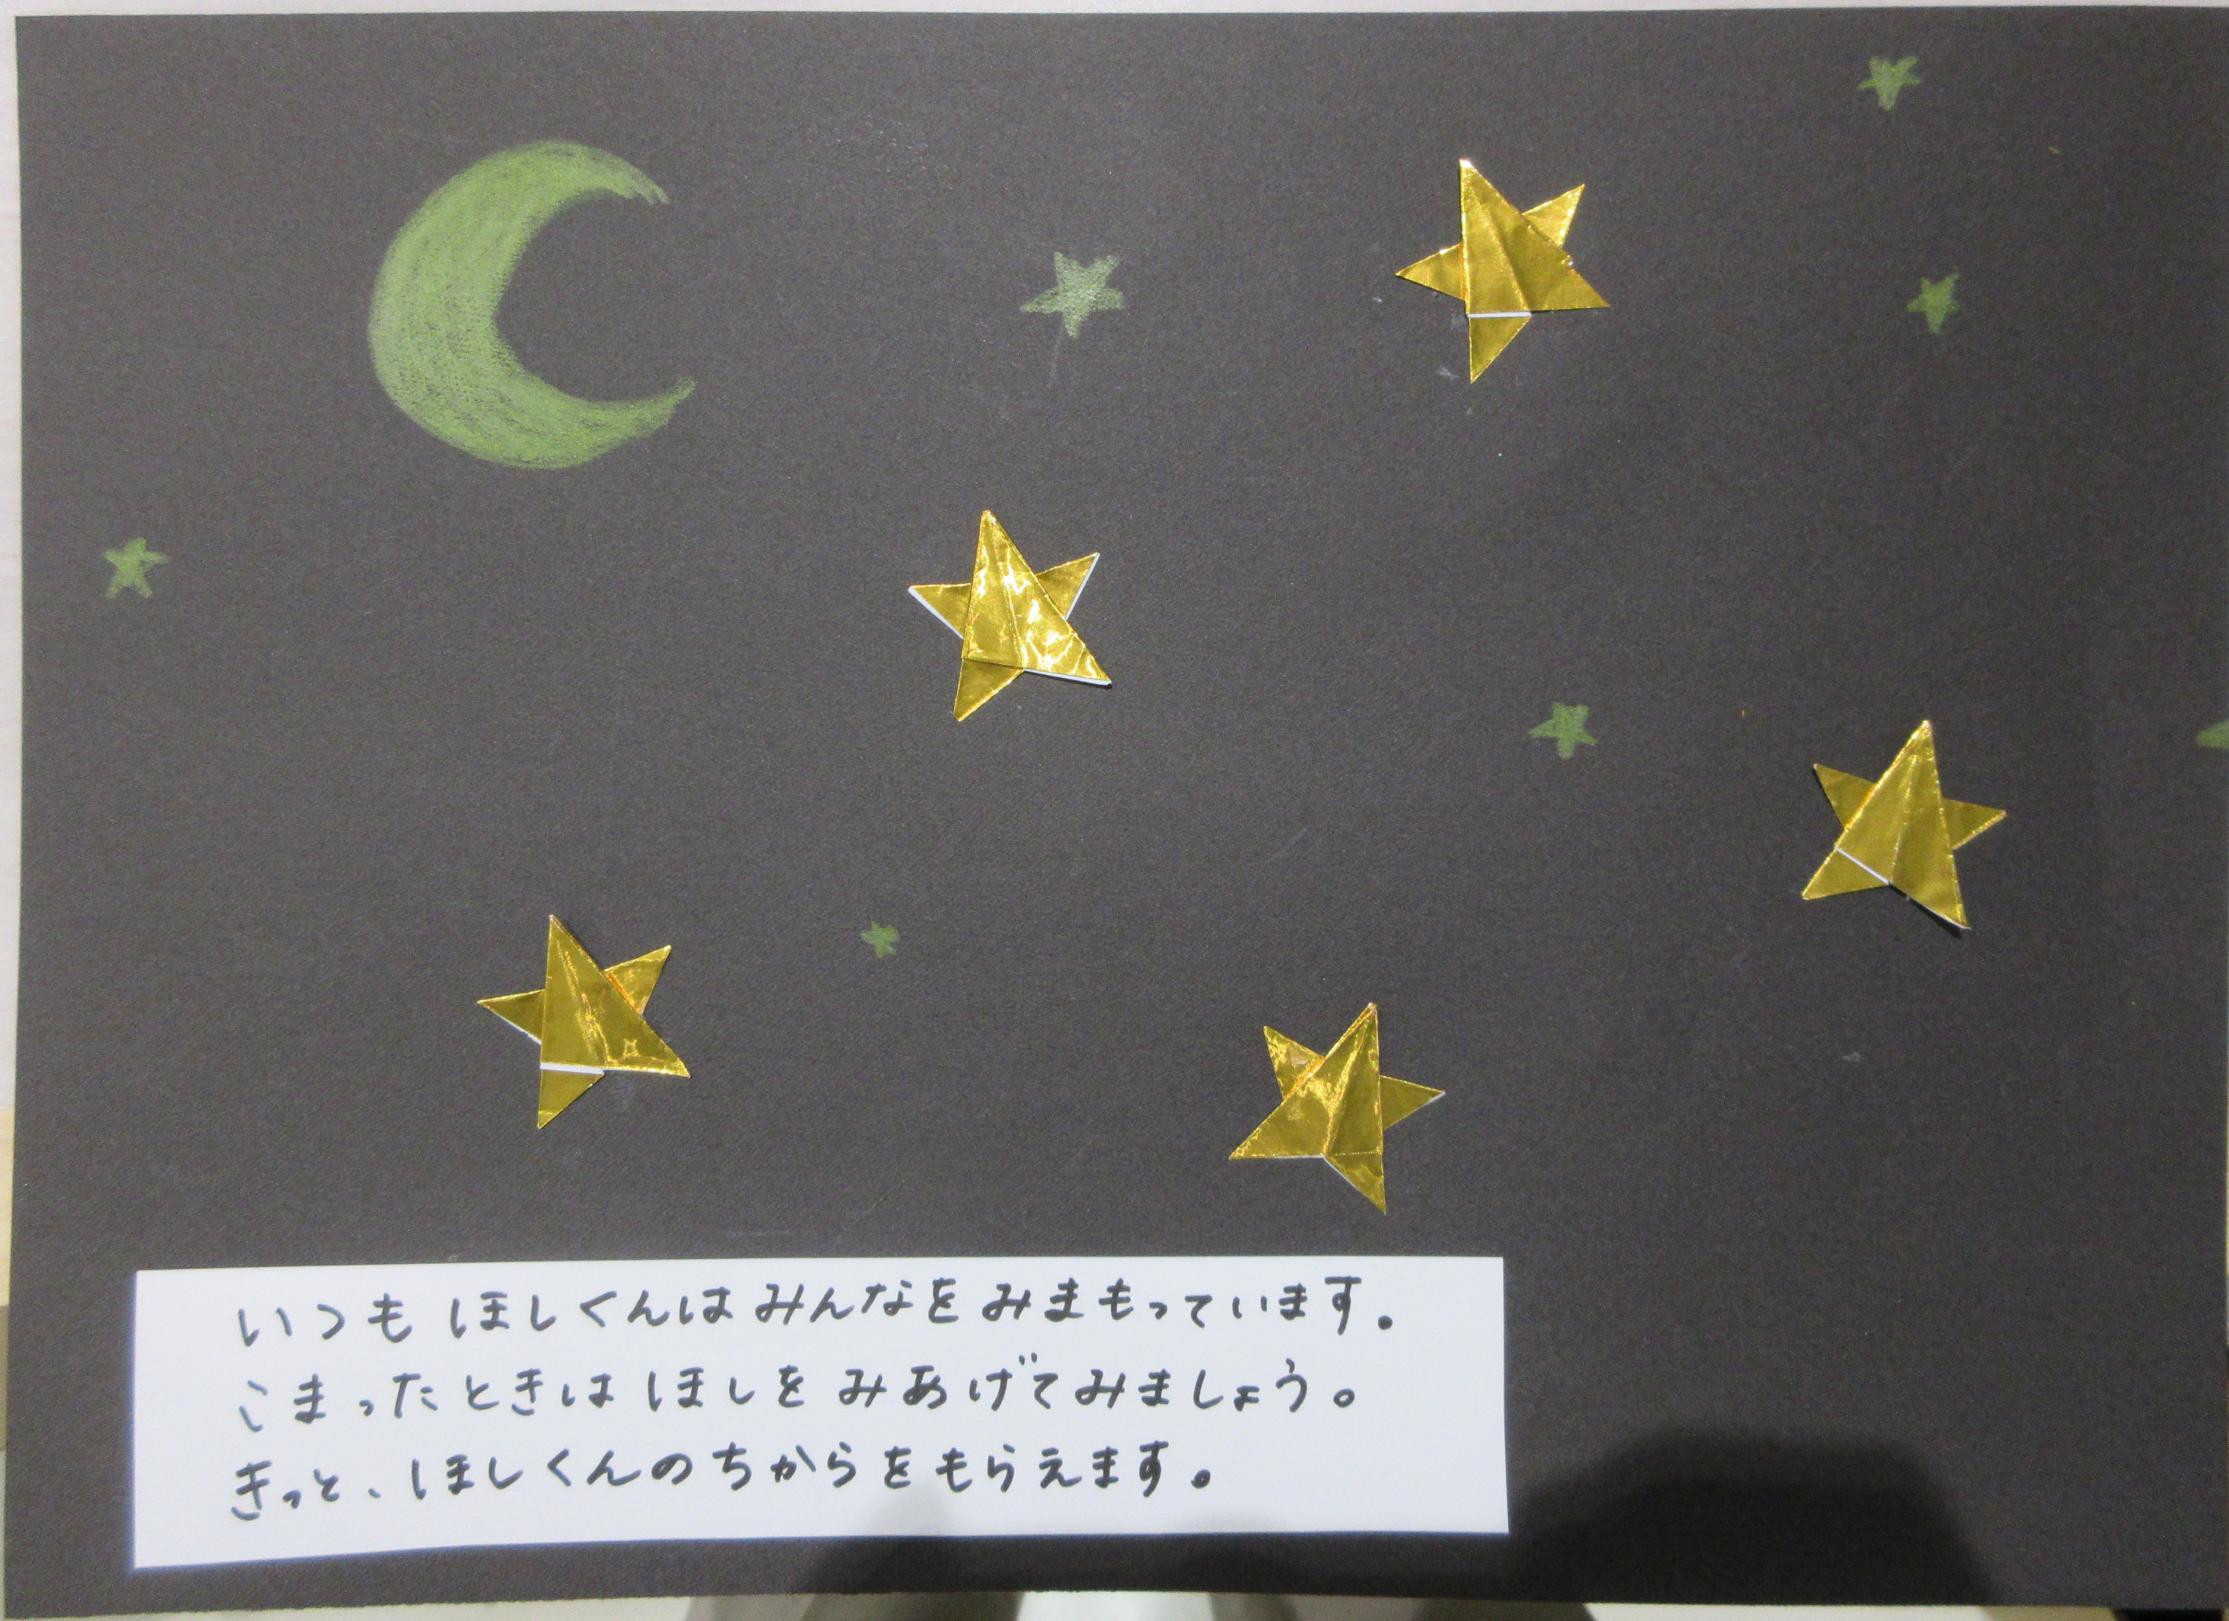 いつも ほしくんは みんなを みまもっています。
こまったときは ほしを みあげてみましょう。
きっと、ほしくんの ちからを もらえます。